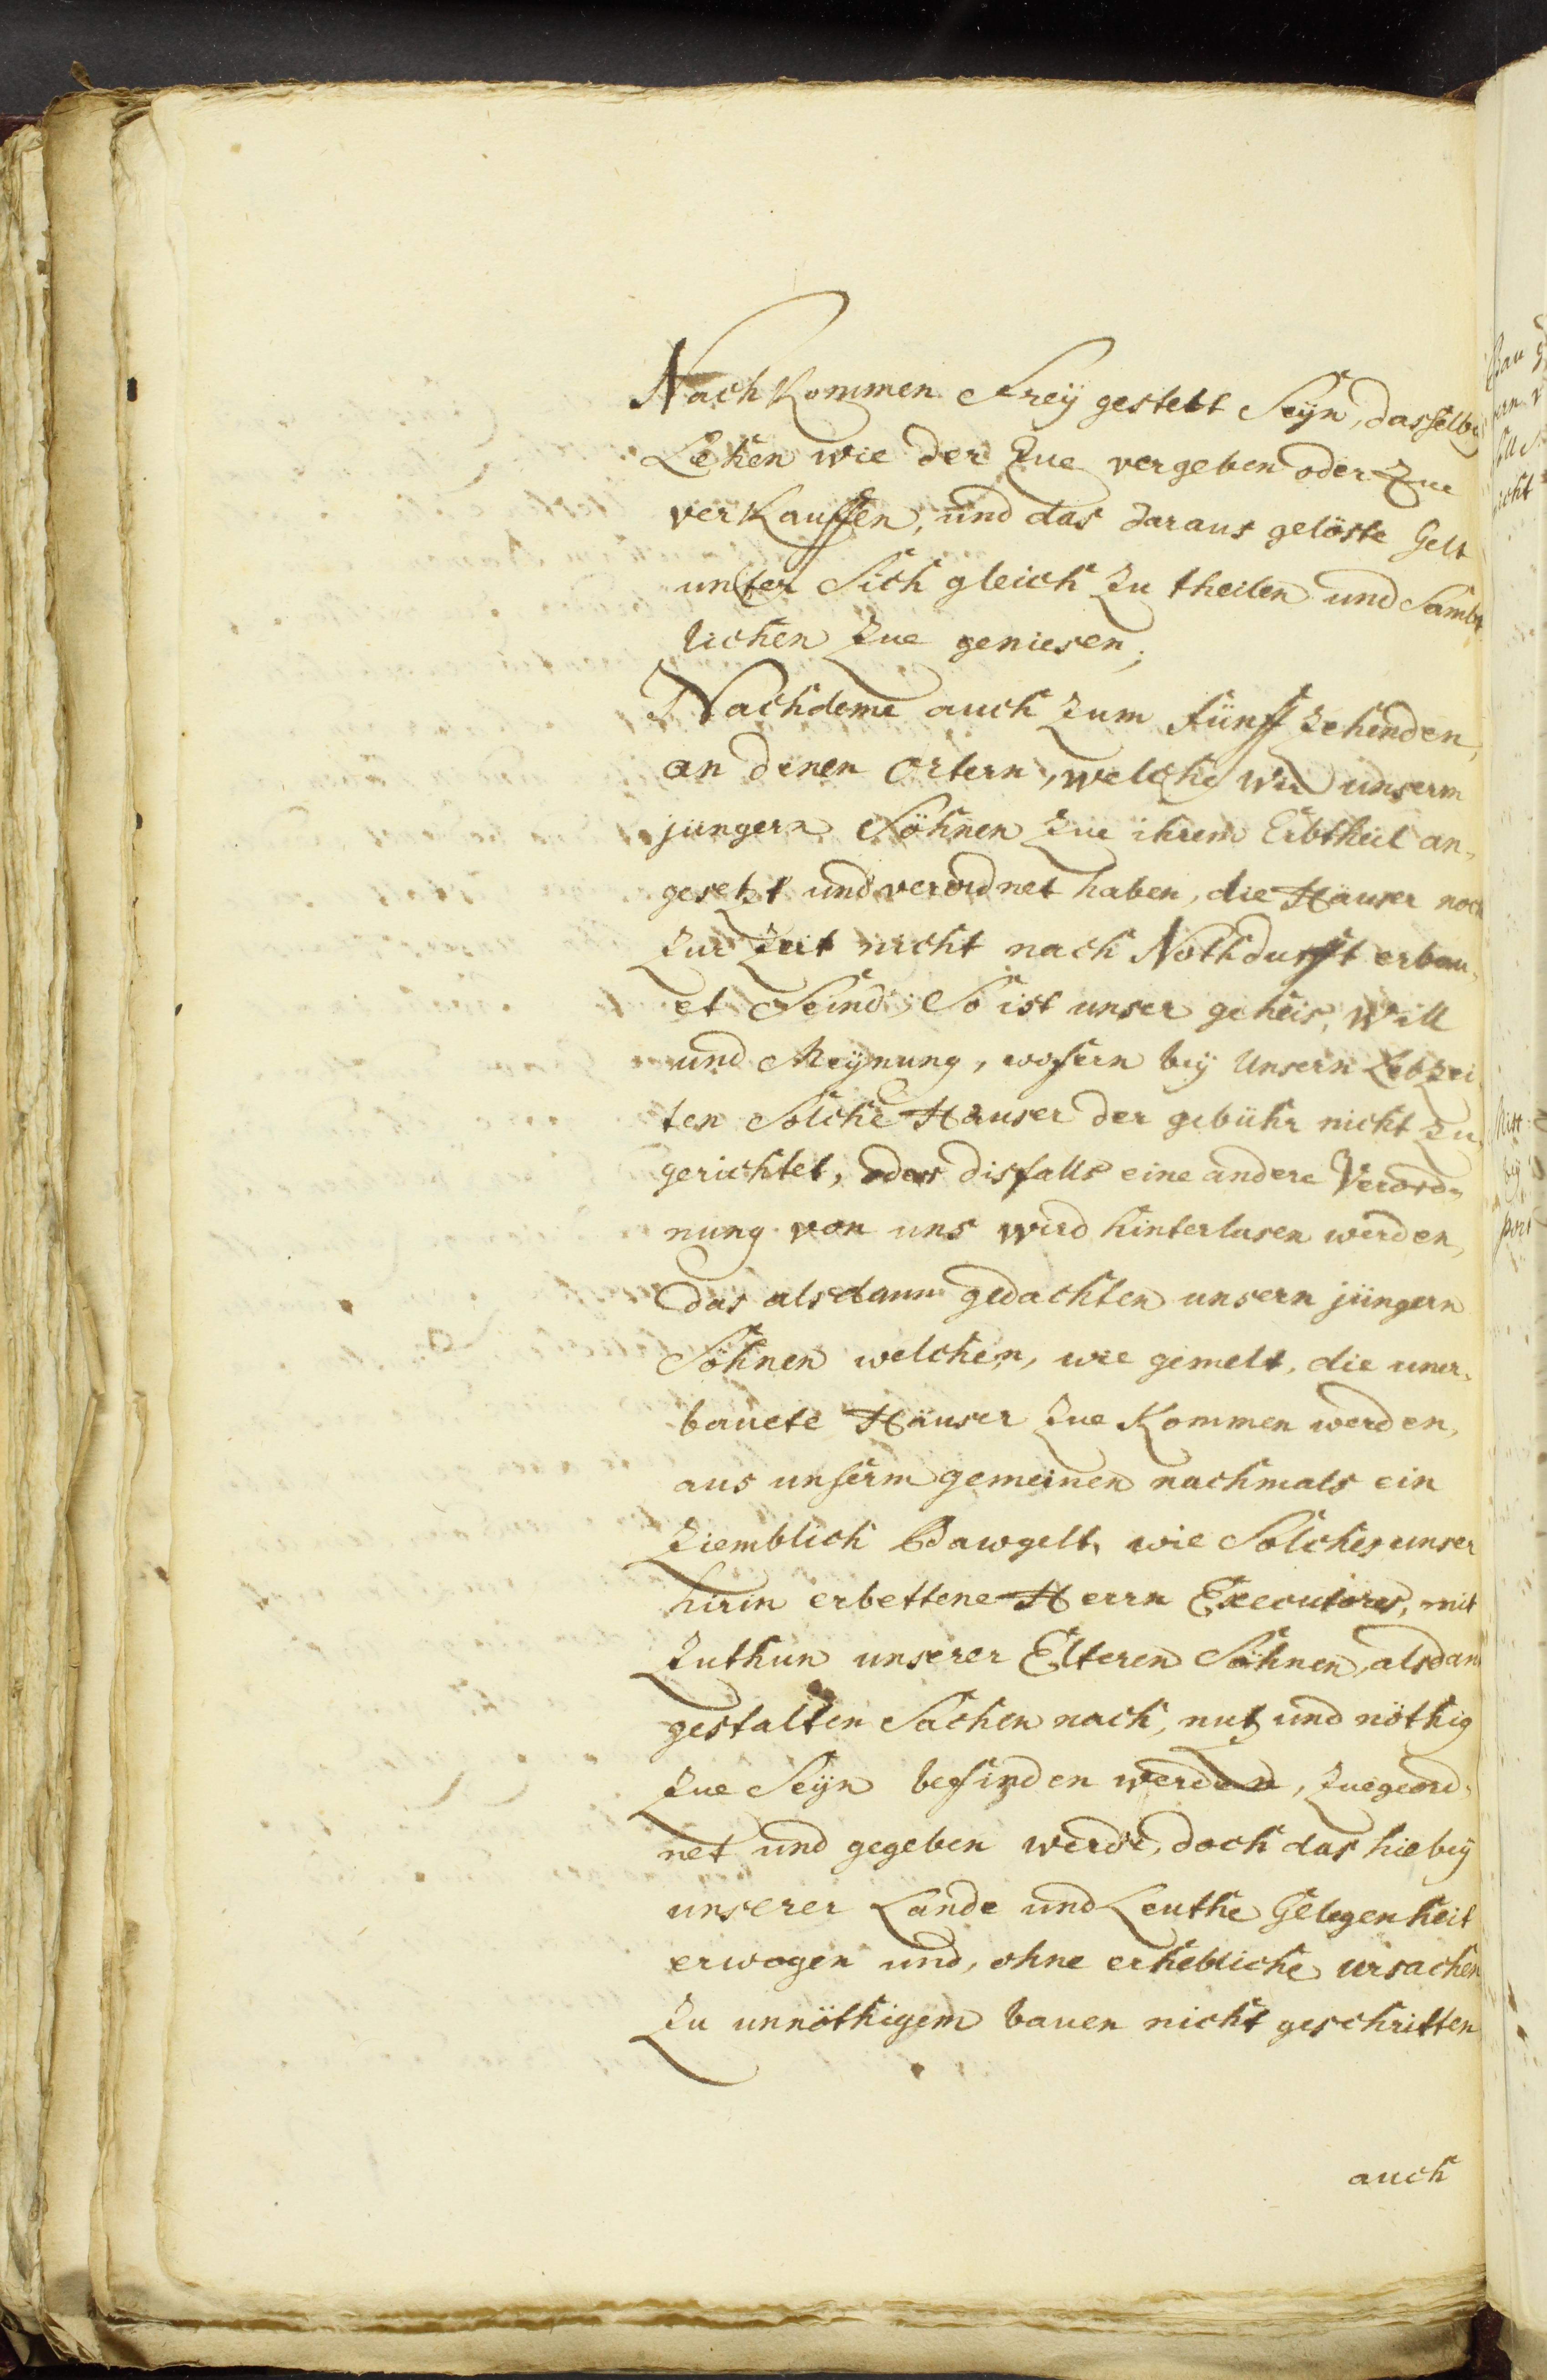 NachKommen Freÿ gestelt Seÿn, dasselbig
Lehen wie der Zue vergeben oder Zue
verKauffen, und das daraus gelöste Gelt
unter Sich gleich Zu theilen und Sambt
lichen Zue geniesen;
Nachdeme auch Zum fünff Zehenden,
an denen Ortern, welche Wir unserm
jungern Söhnen Zue ihrem Erbtheil an-
gesetzt und verordnet haben, die Häuser noch
Zur Zeit nicht nach Nothdurfft erbau-
et Seind; So ist unser geheis, Will
und Meÿnung, wofern beÿ Unsern Lebzei
ten Solche Häuser der gebühr nicht Zu
gerichtet, oder disfalls eine andere Verord-
nung von uns wird hinterlasen werden,
das alsdann gedachten unsern jüngern
Söhnen welchen, wie gemelt, die uner-
bauete Häuser Zue Kommen werden,
aus unserm gemeinen nachmals ein
Ziemblich Bawgelt, wie Solches unser
hirin erbettene Herrn Executores, mit
Zuthun unserer Elteren Söhnen, alsdan
gestalten Sachen nach, nutz und nöthig
Zue Seÿn befinden werden, Zuegeord-
net und gegeben werde, doch das hiebeÿ
unserer Lande und Leuthe Gelegenheit
erwogen und, ohne erhebliche ursachen
Zu unnöthigem bauen nicht geschritten
auch